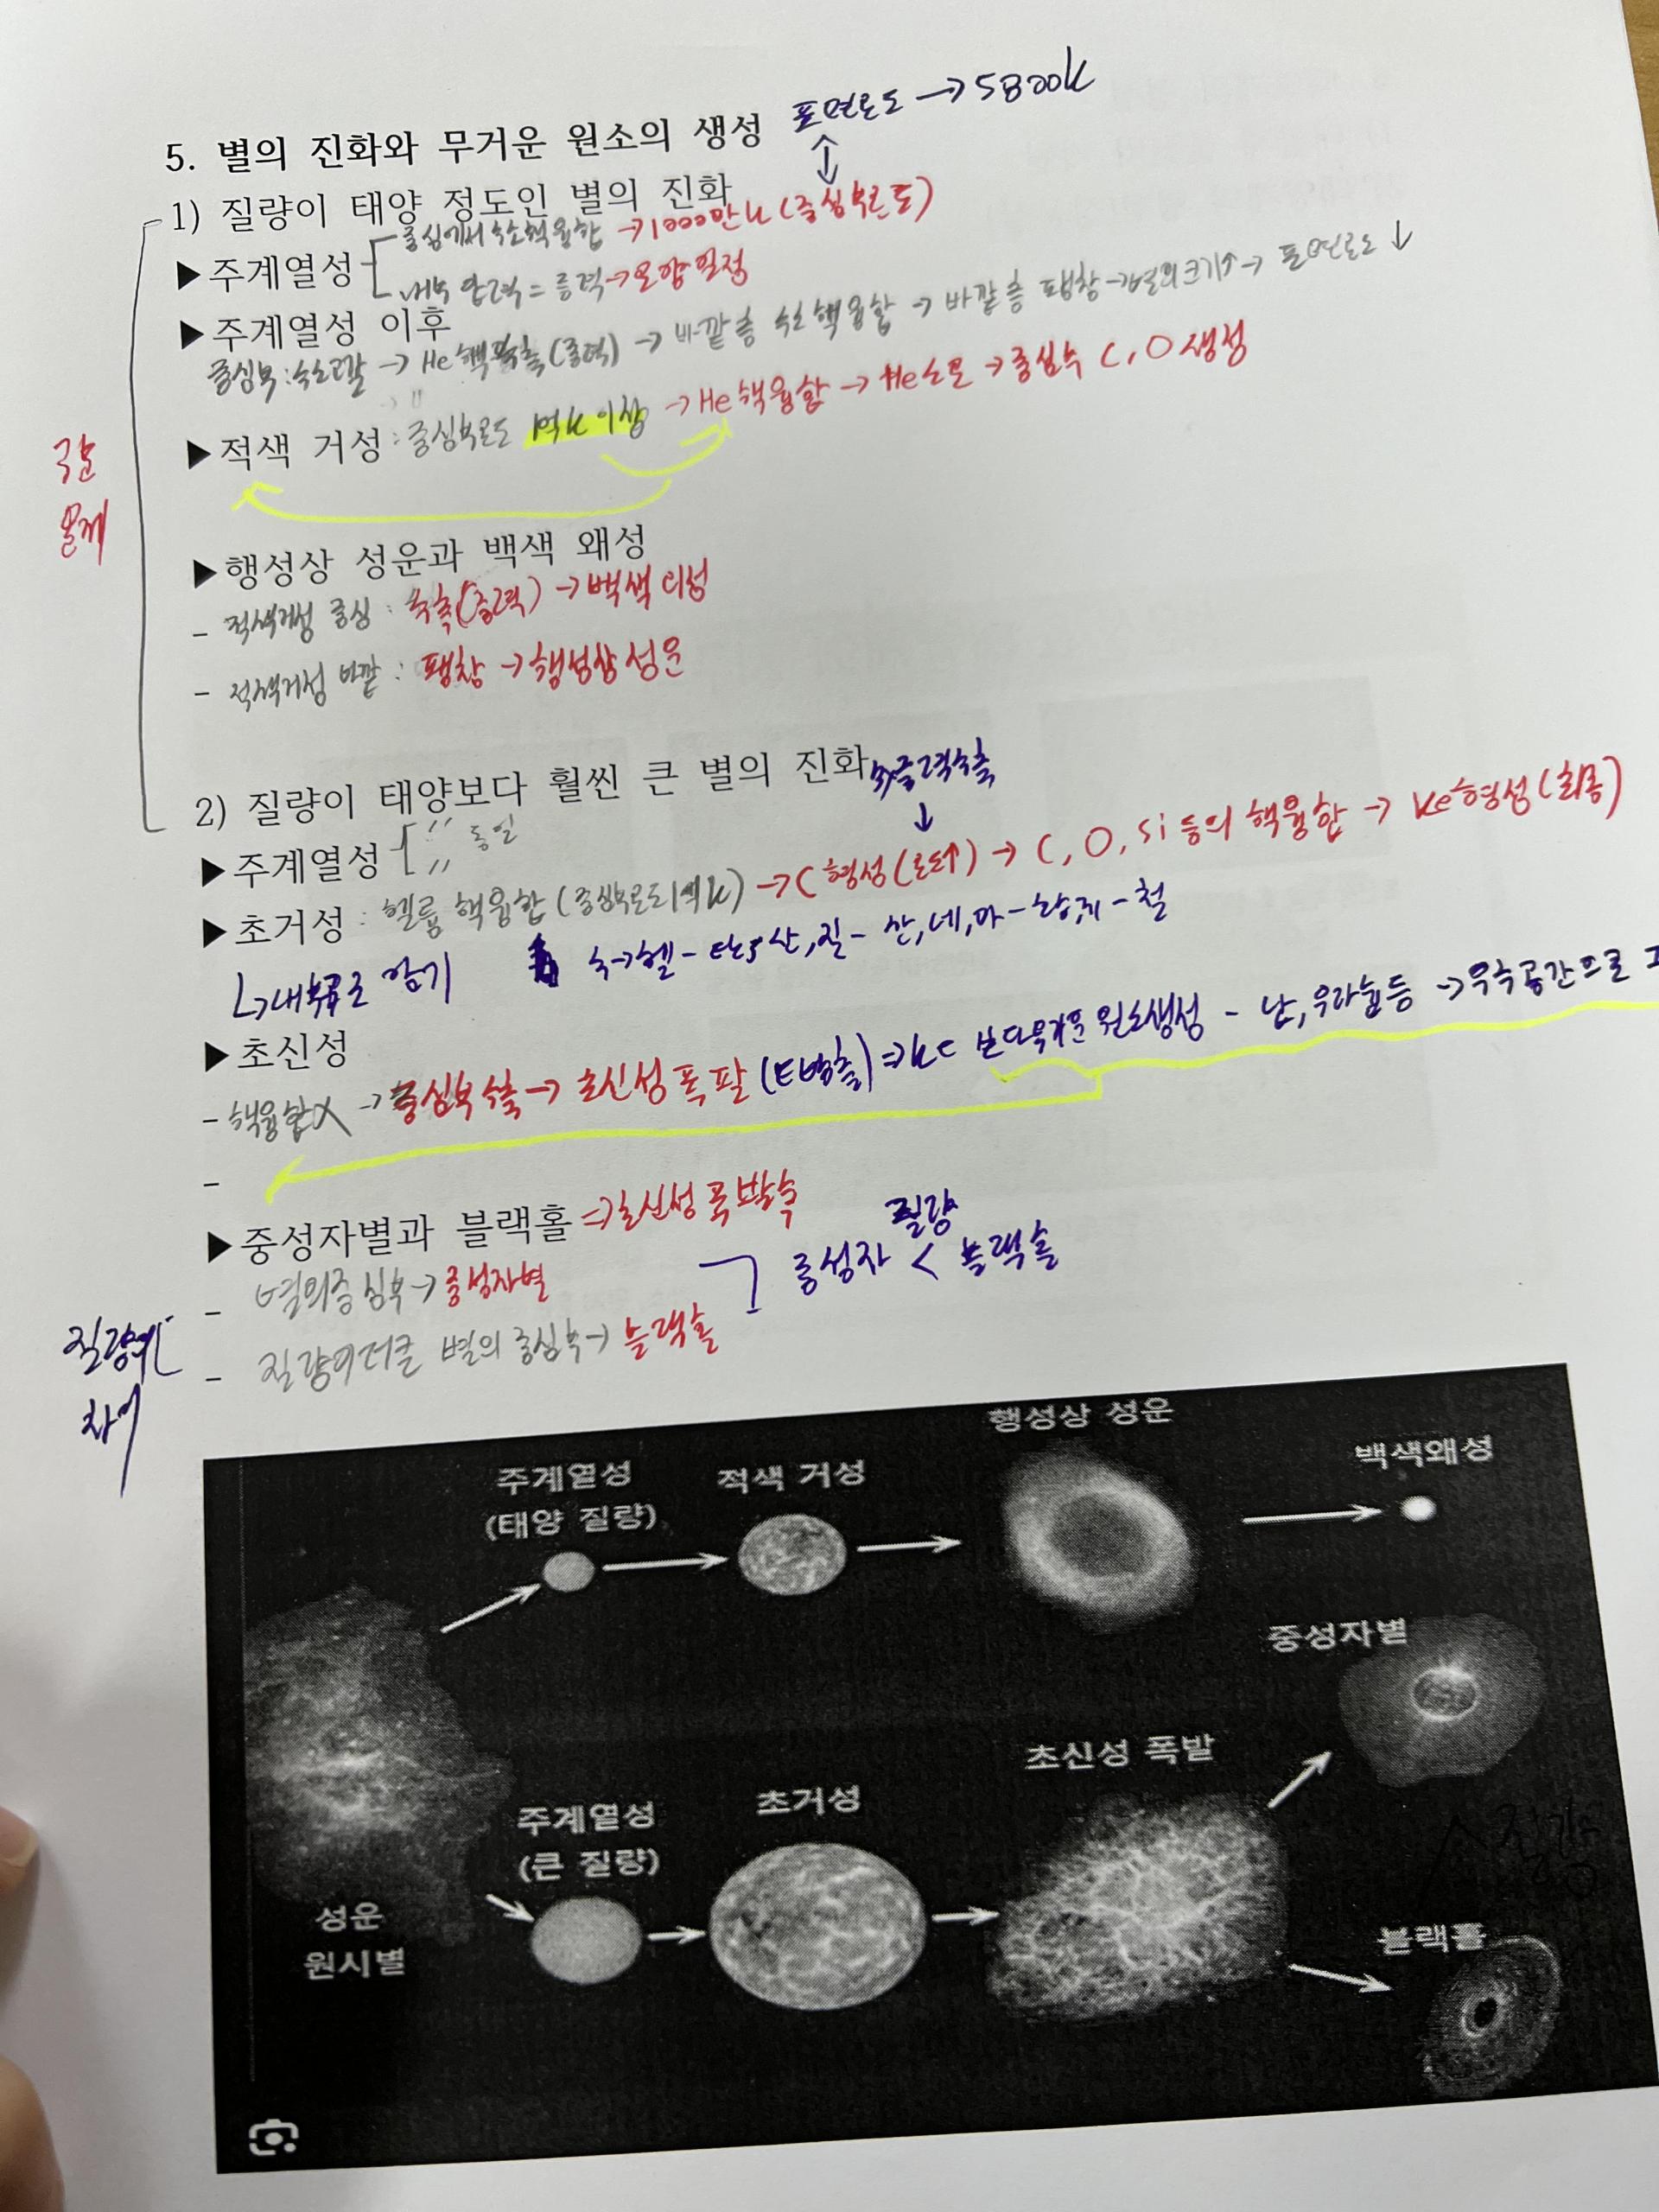 5. 별의 진화와 무거운 원소의 생성 표면온도 → 5800K
1) 질량이 태양 정도인 별의 진화
▶주계열성 중심에서 수소핵융합 → 1000만K (중심부온도)
내부 압력 = 중력 → 모양일정
▶주계열성 이후
중심부 : 수소고갈 → He핵 수축(중력) → 바깥층 수소핵융합 → 바깥층 팽창 → 별의크기↑ → 표면온도↓
▶적색 거성 : 중심부온도 1억K 이상 → He핵융합 → He소모 → 중심부 C, O 생성
▶행성상 성운과 백색 왜성
- 적색거성 중심 : 수축(중력) → 백색왜성
- 적색거성 바깥 : 팽창 → 행성상성운
2) 질량이 태양보다 훨씬 큰 별의 진화 중력수축
▶주계열성 〃 동일
▶초거성 : 헬륨 핵융합 (중심부온도 1억K) → C형성(온도↑) → C, O, Si 등의 핵융합 → 형성(최종)
암기 수→헬-탄,산,질-산,네,마-황,규-철
▶초신성
- 핵융합X → 중심부수축 → 초신성폭팔 (E방출) ⇒ 보다무거운원소생성 - 납, 우라늄등 → 우주공간으로
-
▶중성자별과 블랙홀 ⇒ 초신성 폭발후
- 별의중심부 → 중성자별
질량
중성자 < 블랙홀
- 질량이더큰 별의 중심부 → 블랙홀
질량
차이
행성상 성운
백색왜성
주계열성
(태양 질량)
적색 거성
중성자별
초신성 폭발
초거성
주계열성
(큰 질량)
질량
성운
원시별
블랙홀